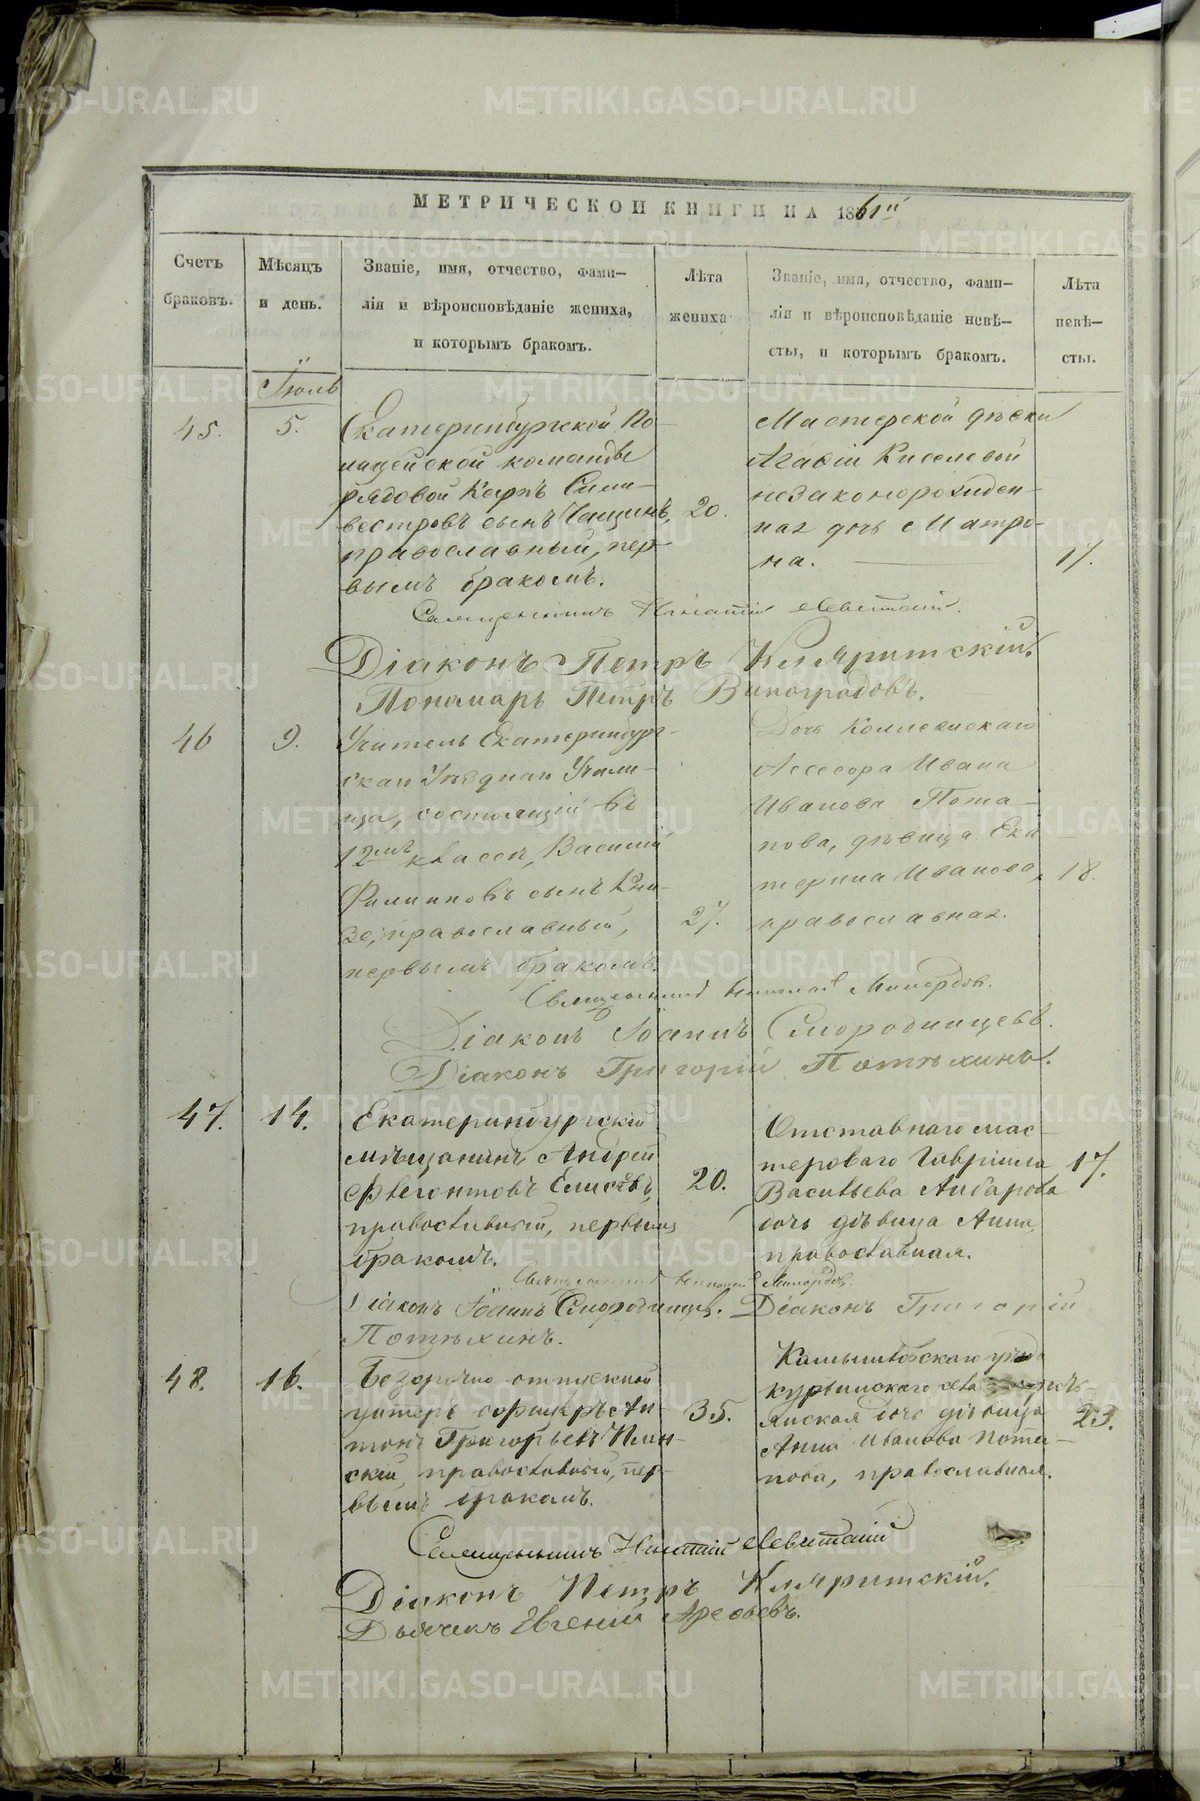 МЕТРИЧЕСКОЙ КНИГИ НА 1861й
Счетъ браковъ.
Мѣсяцъ и день.
Званіе, имя, отчество, фами-
лія и вѣроисповѣданіе жениха,
и которымъ бракомъ.
Лѣта жениха
Званіе, имя, отчество, фами-
лія и вѣроисповѣданіе невѣ-
сты, и которымъ бракомъ.
Лѣта невѣ-
сты.
Іюль
45.
5.
Екатеринбургской По-
лицейской команды
рядовой Карпъ Сили-
вестровъ сынъ Чащинъ,
православный, пер-
вымъ бракомъ.
20.
Мастерской дѣвки
Агафіи Киселевой
незаконорожден-
ная дочь Матро-
на.
17.
Священникъ Игнатій Левитскій.
Діаконъ Петръ
Пономарь Петръ Виноградовъ.
46
9.
Учитель Екатеринбург-
скаго Уѣзднаго Учили-
ща, состоящій въ
12мъ классѣ, Василій
Филипповъ сынъ Кня-
зе, православный,
первымъ бракомъ.
27.
Дочь Коллежскаго
Ассесора Ивана
Иванова Пота-
пова, дѣвица Ека-
терина Иванова,
православная.
18.
Священникъ Николай Милордов.
Діаконъ Іоаннъ Смородинцевъ.
Діаконъ Григорій Потѣхинъ.
47.
14.
Екатеринбургскій
мѣщанинъ Андрей
Флегонтовъ Елисѣевъ,
православный, первымъ
бракомъ.
20.
Отставнаго мас-
тероваго Гавріила
Васильева Амбарова
дочь дѣвица Анна,
православная.
17.
Священникъ Николай Милордов.
Діаконъ Іоаннъ Смородинцев. Діаконъ Григорій
Потѣхинъ.
48.
16.
Безсрочно отпускной
унтеръ офицеръ Ан-
тонъ Григорьевъ Илин-
скій православный, пер-
вымъ бракомъ.
35.
Камышловскаго уѣзда
курьинскаго села
янская дочь дѣвица
Анна Иванова Пота-
пова, православная.
23.
Священникъ Игнатій Левитскій
Діаконъ Петръ
Дьячекъ Евгеній Арефьевъ.
METRIKI.GASO-URAL.RU